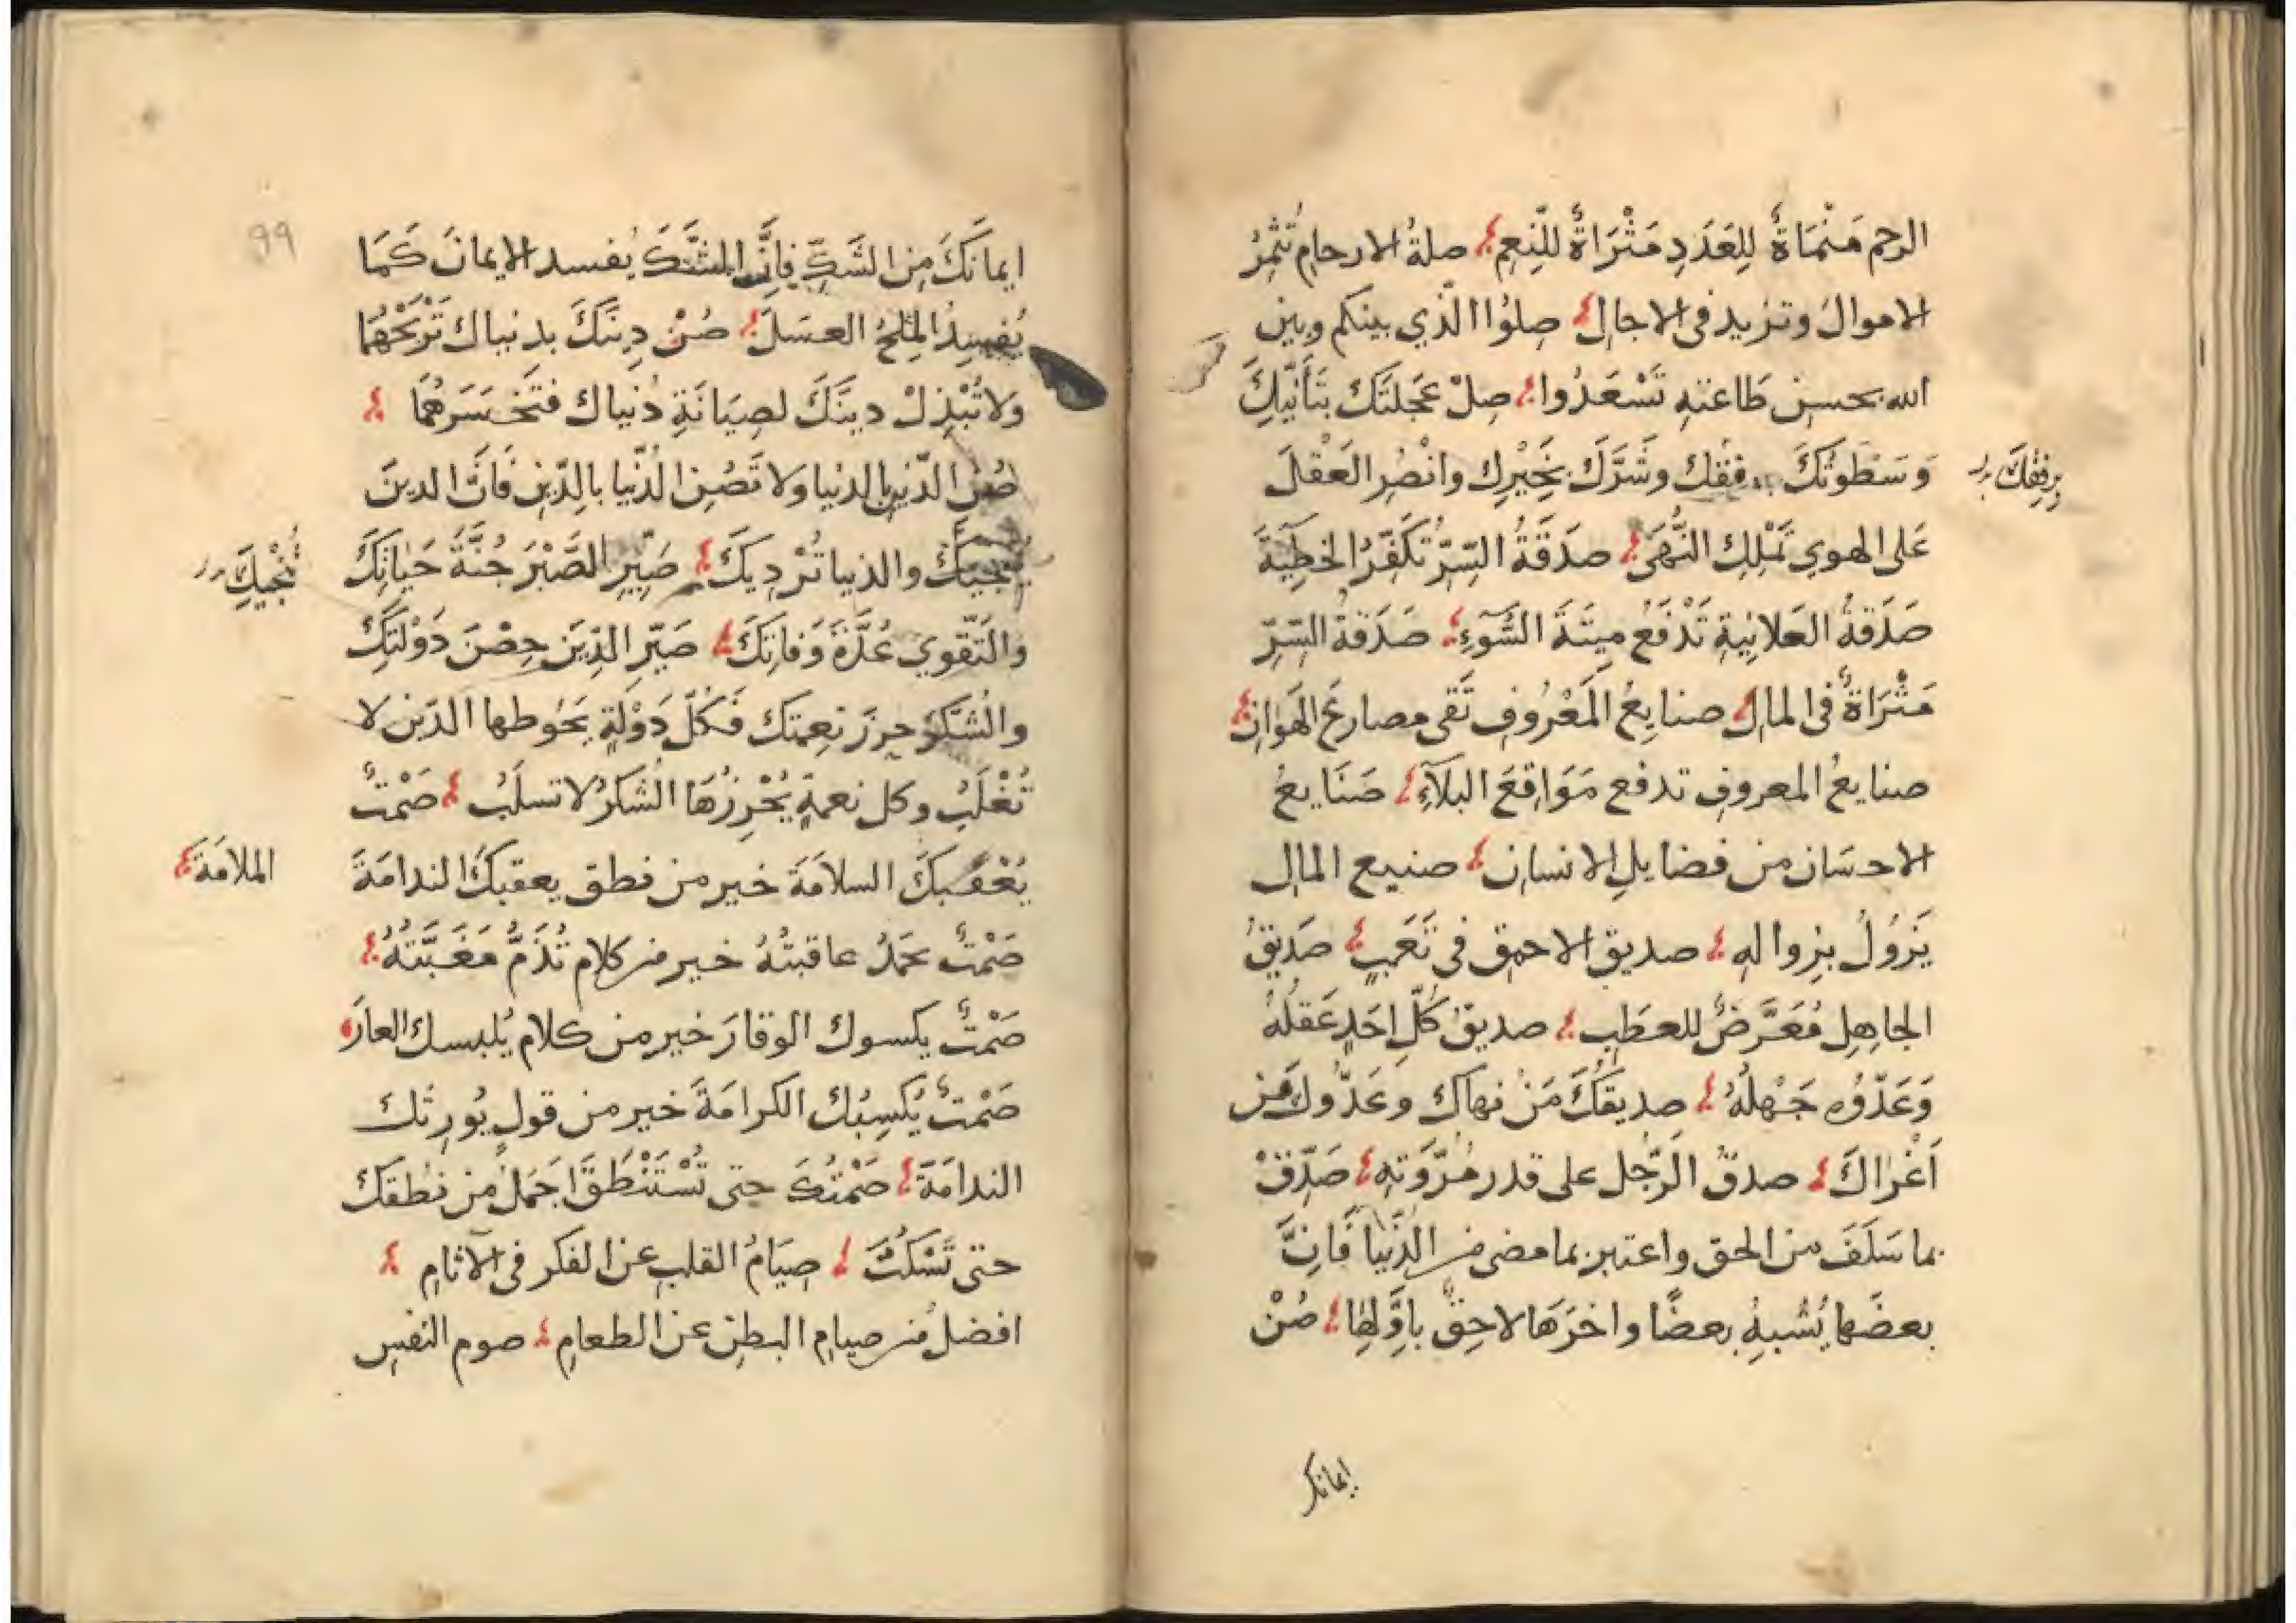 الرحم مَنْمَاةٌ لِلعَدَدِ مَثْرَاةٌ للنِّعِمِ صلةُ الارحامِ تُثْمِرُ
الاموالَ وتزيد فى الاجالِ صِلوُا الّذي بينكم وبين
الله بحسنِ طَاعتهِ تَسْعَدُوا صِلْ عَجلتَكَ بتَأنّيكِ
وَسَطوَتَكَ برفقك وَشَرَّكَ بِخَيْرِكِ وانْصُرِ العَقْلَ
برفِقِكَ
عَلى الهوي تَمْلِكِ النُّهَى صدَقَةُ السِّرِّ تكَفِّرُ الخطِيَةَ
صَدَقةُ العَلانِيةِ تَدْفَعُ مِيتَةَ السُّوءِ صَدَقةُ السِّرِّ
مَثْرَاةٌ فى المالِ صنايعُ المَعْرُوفِ تَقى مصارعَ الهَوانِ
صنايعُ المعروفِ تدفع مَوَاقِعَ البَلآءِ صَنَايعُ
الاحسَان من فضايلِ الانسانِ صنيع المالِ
يَزوُلُ بزوالهِ صديق الاحمق فى تَعَبٍ صَدِيقُ
الجاهِلِ مُعَرَّضٌ للعطَبِ صديقُ كُلِّ احَدٍ عَقلُهُ
وَعَدُّوُه جَهْلُهُ صديقُكَ مَنْ نهاكَ وعَدُّوكَ مَن
اَغْرَاكَ صدقُ الرَّجُل على قدر مُرُّوَتهِ صَدِّقْ
بما سَلَفَ من الحق واعتبر بما مضى من الدُّنيا فَانَّ
بعضَها يُشْبِهُ بعضًا واخرَهَا لاحِقٌ باوَّلِهَا صُنْ
ايمانك
99
ايمانَكَ مِن الشَكِّ فِانَّ الشَّكَ يُفسد الايمانَ كَمَا
يُفسِدُ المِلحُ العسَلَ صُنْ دِينَكَ بدنياك تَرْبَحْهُمَا
وَلا تُبْذِلْ دينَكَ لصِيَانَةِ دُنياك فتَخسَرهُمَا
صُنِ الدّينِ بالدنيا وَلا تَصُنِ الدُنّيا بالدِّينِ فَانَّ الدينَ
ينجيكَ والدنيا تُرْدِيكَ صَيِّرِ الصَّبْرَ جُنَّةَ حَيَاتِكَ
تُنْجيكَ
والتَقّوي عُدَّةَ وَفاتِكَ صَيّرِ الدِّينَ حِصْنَ دَوْلَتِكَ
والشُكرَ حِرزَ نِعِمتك فَكُلّ دَوْلةٍ يَحُوطها الدّين لا
تُغْلَبُ وكل نعمةٍ يُحْرِزُهَا الشكرُ لا تسلَبُ صَمْتٌ
يُعْقِبكَ السلاَمَةَ خير من نطق يعقبكَ الندامَةَ
الملامَةَ
صَمْتٌ تحمَدُ عاقبتُهُ خير من كلام تُذَمُّ مَغَبَّتهُ
صَمْتٌ يكسوك الوقارَ خير من كلام يُلبسك العارَ
صَمْتٌ يُكسِبُك الكرامَةَ خير من قولٍ يُورِثك
الندامَةَ صَمْتُكَ حتى تُسْتَنْطَقَ اجَملُ من نطقكَ
حتى تَسْكُتَ صِيَامُ القلبِ عن الفكر فى الآثامِ
افضلُ من صيامِ البطنِ عن الطعامِ صوم النفسِ